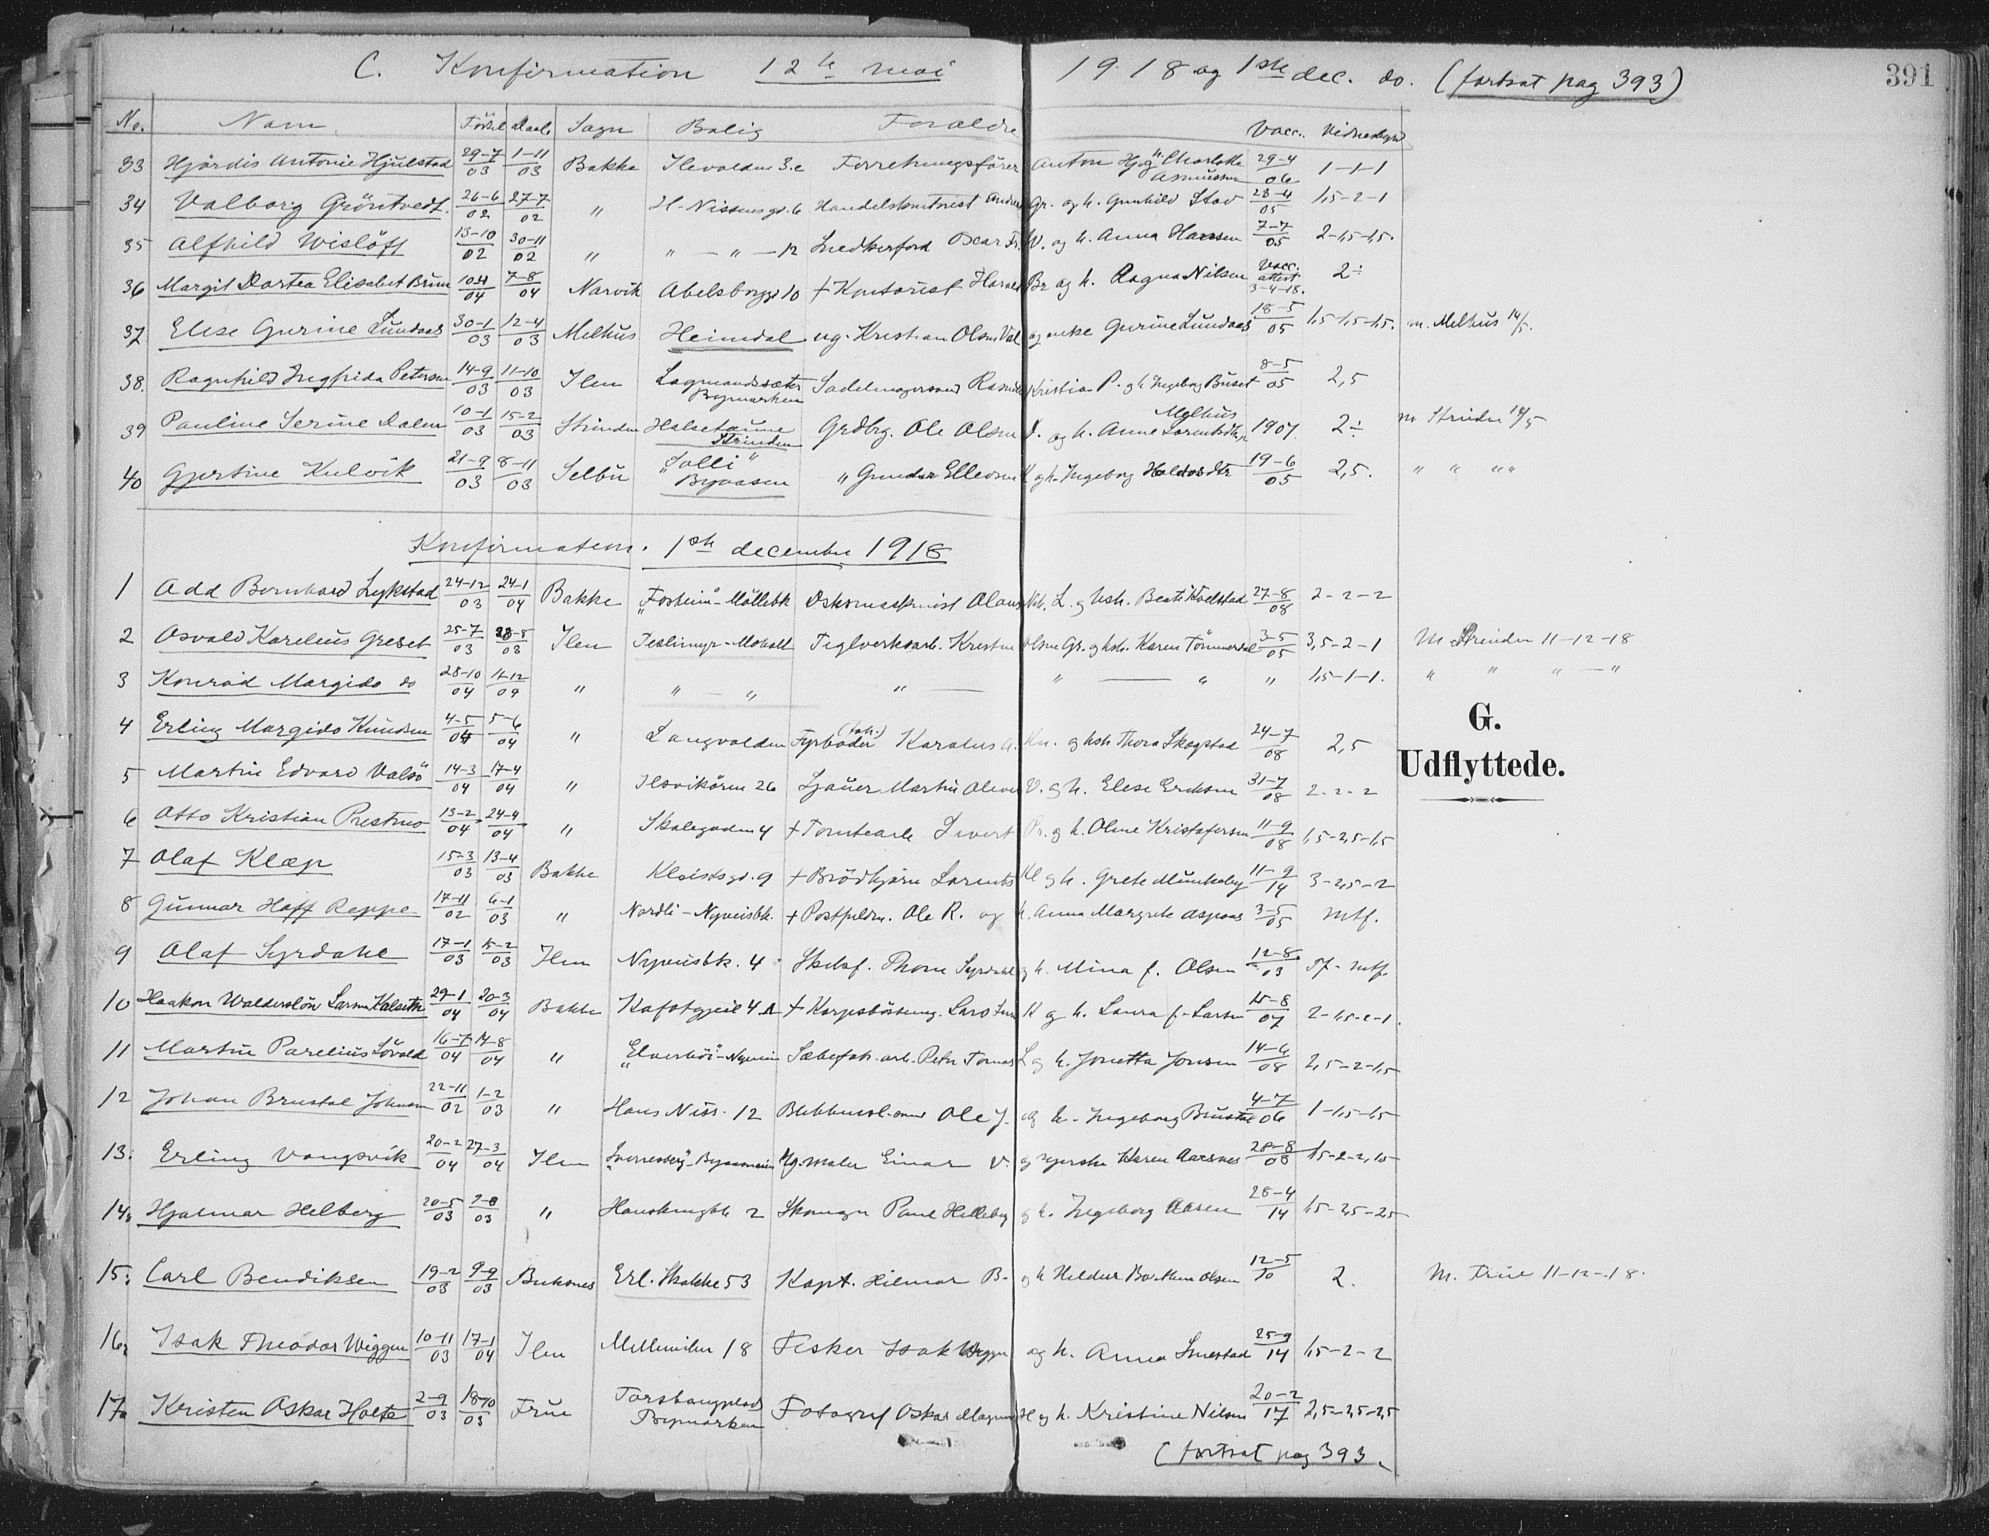 C. Konfirmation 12te mai 1918 og 1ste dec. do. (fortsat pag 393) 391
No. Navn Födsel Daab Sogn Bolig Foræld­re Vacc. Vidnesbyrd
33 Hjördis Antonie Hjulstad 29-7/03 1-11/03 Bakke Ilevolden 3.c Forretningsförer Anton Hj og h. Charlotte Asmussen 29-4/06 1-1-1
34 Valborg Gröntvedt 26-6/02 27-7/02 " H-Nissensgd. 6 Handelskontorist Gr. og h. Gunhild Stav 28-4/05 1,5-2-1
35 Alfhild Wislöff 13-10/02 30-11/02 " " — " — 12 Snedkerford Oscar Fr. W. og h. Anna Hansen 7-7/05 2-1,5-1,5.
36 Margit Dortea Elisabet Bruun 7-8/04 Narvik Abelsborgs 10 + Kontorist Harald Br og h. Ragna Nilsen Vacc. attest 3-4-18. 2÷
37 Elise Gurine Lundaas 30-1/03 12-4/03 Melhus Heimdal ug. Kristian Olsen Val og enke Gurine Lundaas 18-5/05 1,5-1,5-1,5. m. Melhus 14/5.
38. Ragnhild Ingfrida Petersen 14-9/03 11-10/03 Ilen Lagmandssæter Bymarken Sadelmagersvend Kristian P. og h Ingeborg Buset 8-5/05 2,5
39 Pauline Serine Dalen 10-1/03 15-2/03 Strinden Halsetaune Strinden Grdbrg. Ole Olsen D. og h. Anne Melhus 1907. 2÷ m Strinden 14/5
40 Gjertine Kulvik 21-9/03 8-11/03 Selbu "Solli" Byaasen " Gunder Ellevsen K og h. Ingeborg Haldosdtr 19-6/05 2,5. " " " "
Konfirmation. 1ste december 1918
1 Odd Bernhard Lykstad 24-12/03 24-1/04 Bakke "Forheim"-Möllebk Oskomaskinist Olaus L. og hst. Beate Kvelstad 27-8/08 2-2-2
2 Osvald Karelius Greset 25-7/03 28-5/03 Ilen Teglverksarb. Kristen Olsen Gr. og hst. Karen Tömmerdal 3-5/05 3,5-2-1 M Strinden 11-12-18
3 Konrad Margido do 28-10/04 11-12/04 " " — " " — " — " " 1,5-1-1. " " " — "
4 Erling Margido Knudsen 4-5/04 5-6/04 " Langvolden Fyrböder (tob.) Karolus Kn. og hst. Thora Skogstad 24-7/08 2,5 G.
5 Martin Edvard Valsö 14-3/04 17-4/04 " Ilsvikören 26 Sjauer Martin Oliver V. og h. Elise Eriksen 31-7/08 2-2-2 Udflyttede.
6 Otto Kristian Prestmo 13-2/04 24-4/04 " Skolegaden 4 + Tomtearb Sivert Pr. og h. Oline Kristofersen 11-9/08 1,5-2,5-1,5
7 Olaf Klæp 15-3/03 13-4/03 Bakke Kleistsgd. 9 + Brödkjörer Lorents Kl og h. Grete Munkeby 11-9/14 3-2,5-2
8 Gunnar Hoff Reppe 17-11/02 6-1/03 " Nordli-Nyveisbk. + Postfuldm. Ole R. og h. Anna Margrete Aspaas 3-5/05 mtf.
9 Olaf Syrdahl 17-1/03 15-2/03 Ilen Nyveisbk. 4 Skibsf. Thom Syrdahl og h. Mina f. Olsen 12-8/03 Tf-mtf.
10 Haakon Walderslöv Larsen Kalseth 29-1/04 20-3/04 Bakke + Korpsbössemg. Lars K og h. Laura f. Larsen 15-8/07 2-1,5-2-1.
11 Martin Parelius Lövold 16-7/04 14-8/04 " "Elverhöi"-Nyveien Sæbefab. arb. Petr Tomas L og h. Jonetta Jonsen 14-6/08 2,5-2-1,5
12 Johan Brustal Johnsen 22-11/02 1-2/03 " Hans Niss. 12 Blikkensl.-svend Ole J. og h. Ingeborg Brustal 4-7/06 1-1,5-1,5
13. Erling Vangsvik 20-2/04 27-3/04 Ilen "Sverresborg"-Byaasveien Ug. maler Einar V. og syerske Karen Aarsnes 28-8/08 1,5-2-2,1,5
14. Hjalmar Helberg 20-5/03 2-8/03 " Hanskemgbk 2 Skomgr Paul Helleberg og h. Ingeborg Aasen 28-4/14 1,5-2,5-2,5
15. Carl Bendiksen 19-2/03 9-9/03 Buksnes Erl. Skakke 53 Kapt. Hilmar B. og h Hildur Olsen 12-5/10 2. M. Frue 11-12-18.
16. Isak Theodor Wiggen 10-11/03 17-1/04 Ilen Mellemilen 18 Fisker Isak Wiggen og h. Anna Smestad 25-9/14 1,5-2-2
17. Kristen Oskar Holte 2-9/03 18-10/03 Frue Bymarken Fotograf Oskar Magnus H og h. Kristine Nilsen 20-2/17 2,5-2,5-2,5
(fortsat pag 393.